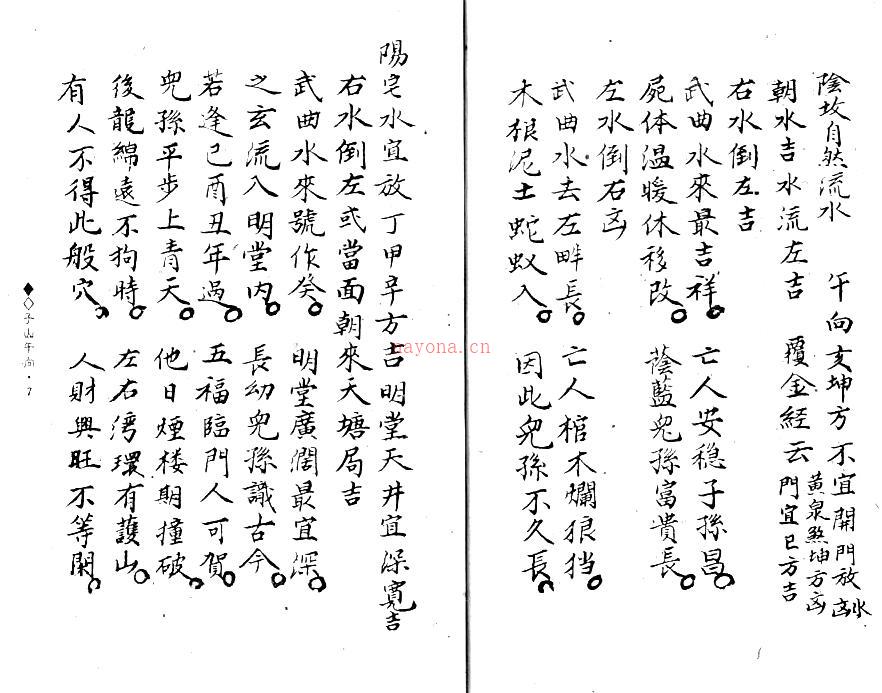 陰坟自然流水　午向亥坤方不宜開門放水凶
朝水吉水流左吉　覆金經云門宜巳方吉
黃泉煞坤方凶
右水倒左吉
武曲水來最吉祥。亡人安稳子孫昌。
屍体温暖休移改。蔭藍兒孫富貴長。
左水倒右凶
武曲水去左畔長。亡人棺木爛狼挡。
木根泥土蛇蚁入。因此兒孫不久長。
陽宅水宜放丁甲辛方吉明堂天井宜深寬吉
右水倒左或當面朝來天塘局吉
武曲水來號作癸。明堂廣濶最宜深。
之玄流入明堂内。長幼兒孫識古今。
若逢巳酉丑年過。五福臨門人可賀。
兒孫平步上青天。他日煙楼期撞破。
後龍綿遠不狗時。左右湾環有護山。
有人不得此般穴。人財興旺不等閑。
子山午向·7
nayona.cn